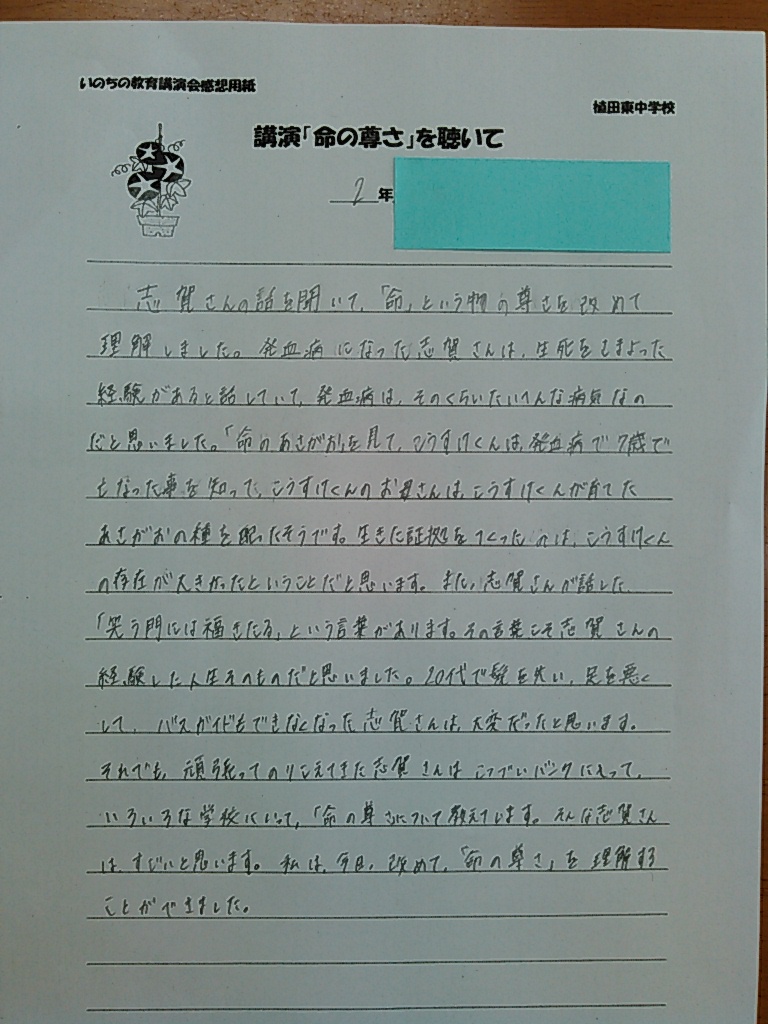 いのちの教育講演会感想用紙
植田東中学校
講演「命の尊さ」を聴いて
2年
志賀さんの話を聞いて、「命」という物の尊さを改めて
理解しました。発血病になった志賀さんは、生死をさまよった
経験があると話していて、発血病は、そのくらいたいへんな病気なの
だと思いました。「命のあさがお」を見て、こうすけくんは、発血病で7歳で
亡なった事を知った、こうすけくんのお母さんは、こうすけくんが育てた
あさがおの種を配ったそうです。生きた証拠をつくったのは、こうすけくん
の存在が大きかったということだと思います。また、志賀さんが話した、
「笑う門には福きたる」という言葉があります。その言葉こそ志賀さんの
経験した人生そのものだと思いました。20代で髪を失い、足を悪く
して、バスガイドもできなくなった志賀さんは、大変だったと思います。
それでも、頑張ってのりこえてきた志賀さんはこつずいバンクに入って、
いろいろな学校にいって、「命の尊さについて教えています。そんな志賀さん
は、すごいと思います。私は、今日、改めて、「命の尊さ」を理解する
ことができました。